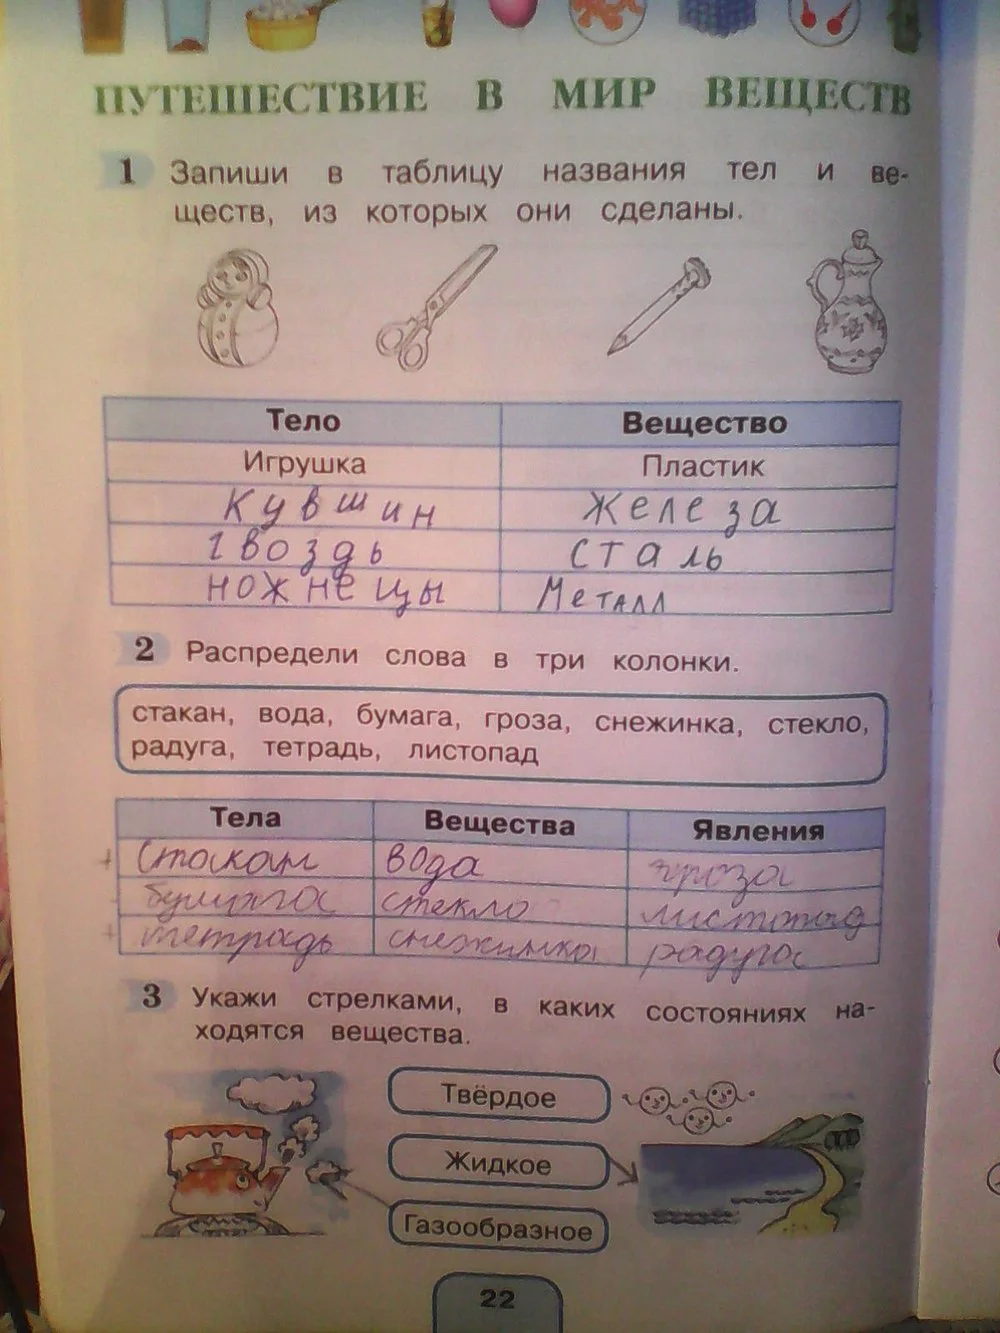 ПУТЕШЕСТВИЕ В МИР ВЕЩЕСТВ
1 Запиши в таблицу названия тел и ве-
ществ, из которых они сделаны.
Тело Вещество
Игрушка Пластик
Кувшин Железа
гвоздь Сталь
ножнецы Металл
2 Распредели слова в три колонки.
стакан, вода, бумага, гроза, снежинка, стекло,
радуга, тетрадь, листопад
Тела Вещества Явления
Стакан вода гроза
бумага стекло листопад
тетрадь снежинка радуга
3 Укажи стрелками, в каких состояниях на-
ходятся вещества.
Твёрдое
Жидкое
Газообразное
22